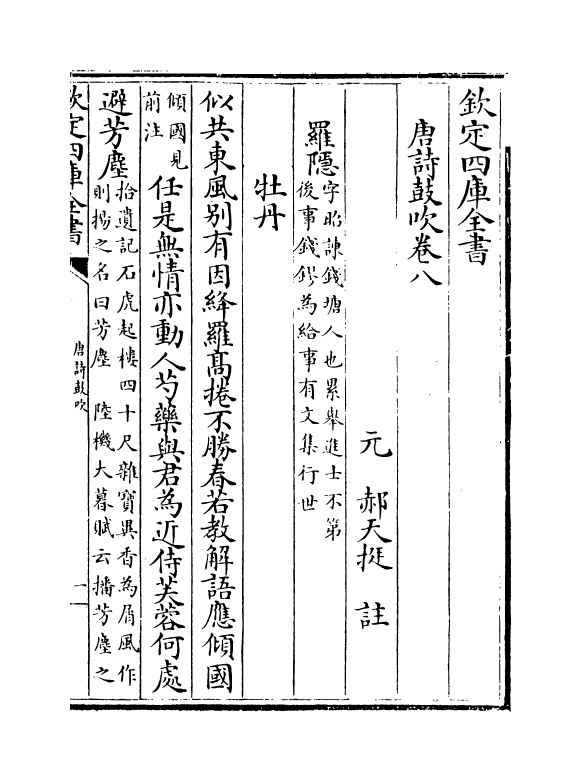 欽定四庫全書
唐詩鼓吹卷八
元　郝天挺　註
羅隱字昭諫錢塘人也累舉進士不第
後事錢鏐為給事有文集行世
牡丹
似共東風别有因絳羅髙捲不勝春若教解語應傾國
傾國見
前注
任是無情亦動人芍藥與君為近侍芙蓉何處
避芳塵拾遺記石虎起樓四十尺雜寶異香為屑風作
則揚之名曰芳塵　陸機大暮賦云播芳塵之
欽定四庫全書
唐詩鼓吹
一